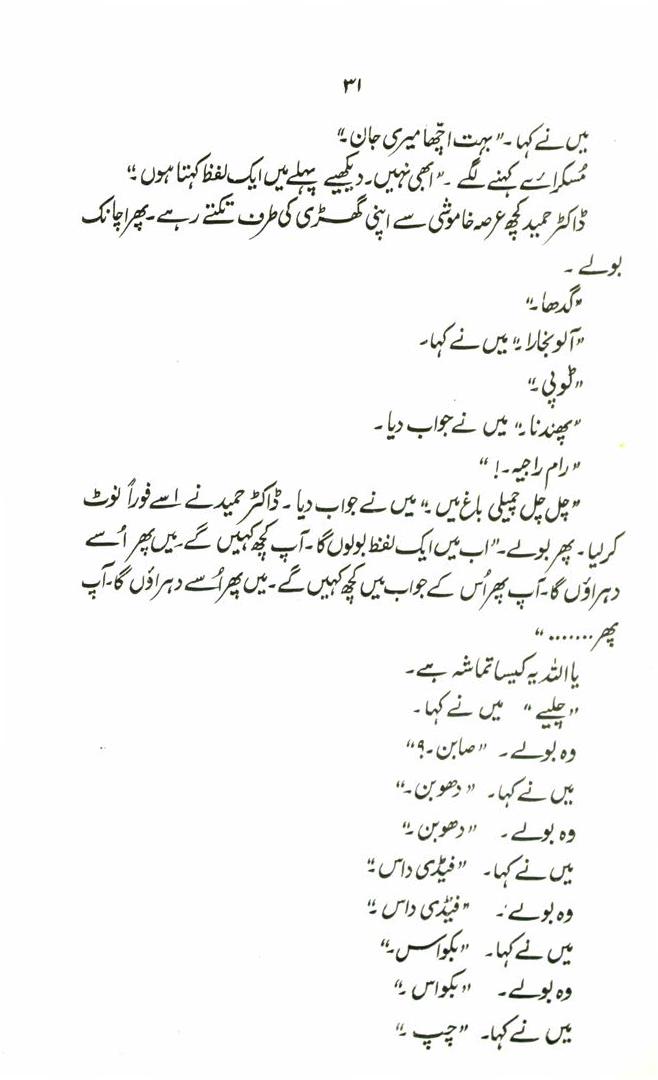 ۳۱
میں نے کہا۔ "بہت اچھا میری جان۔"
مُسکرائے کہنے لگے۔ "ابھی نہیں۔ دیکھیے پہلے میں ایک لفظ کہتا ہوں۔"
ڈاکٹر حمید کچھ عرصہ خاموشی سے اپنی گھڑی کی طرف تکتے رہے۔ پھر اچانک
بولے۔
"گدھا۔"
"آلو بخارا۔" میں نے کہا۔
"ٹوپی۔"
"پھندنا۔" میں نے جواب دیا۔
"رام راجیہ۔!"
"چل چل چمیلی باغ میں۔" میں نے جواب دیا۔ ڈاکٹر حمید نے اسے فوراً نوٹ
کرلیا۔ پھر بولے۔ "اب میں ایک لفظ بولوں گا۔ آپ کچھ کہیں گے۔ میں پھر اُسے
دہراؤں گا۔ آپ پھر اُس کے جواب میں کچھ کہیں گے۔ میں پھر اُسے دہراؤں گا۔ آپ
پھر ......."
یا اللہ یہ کیسا تماشہ ہے۔
"چلیے" میں نے کہا۔
وہ بولے۔ "صابن۔؟"
میں نے کہا۔ "دھوبن۔"
وہ بولے۔ "دھوبن۔"
میں نے کہا۔ "فیڈی داس۔"
وہ بولے۔ "فیڈی داس۔"
میں نے کہا۔ "بکواس۔"
وہ بولے۔ "بکواس۔"
میں نے کہا۔ "چپ۔"